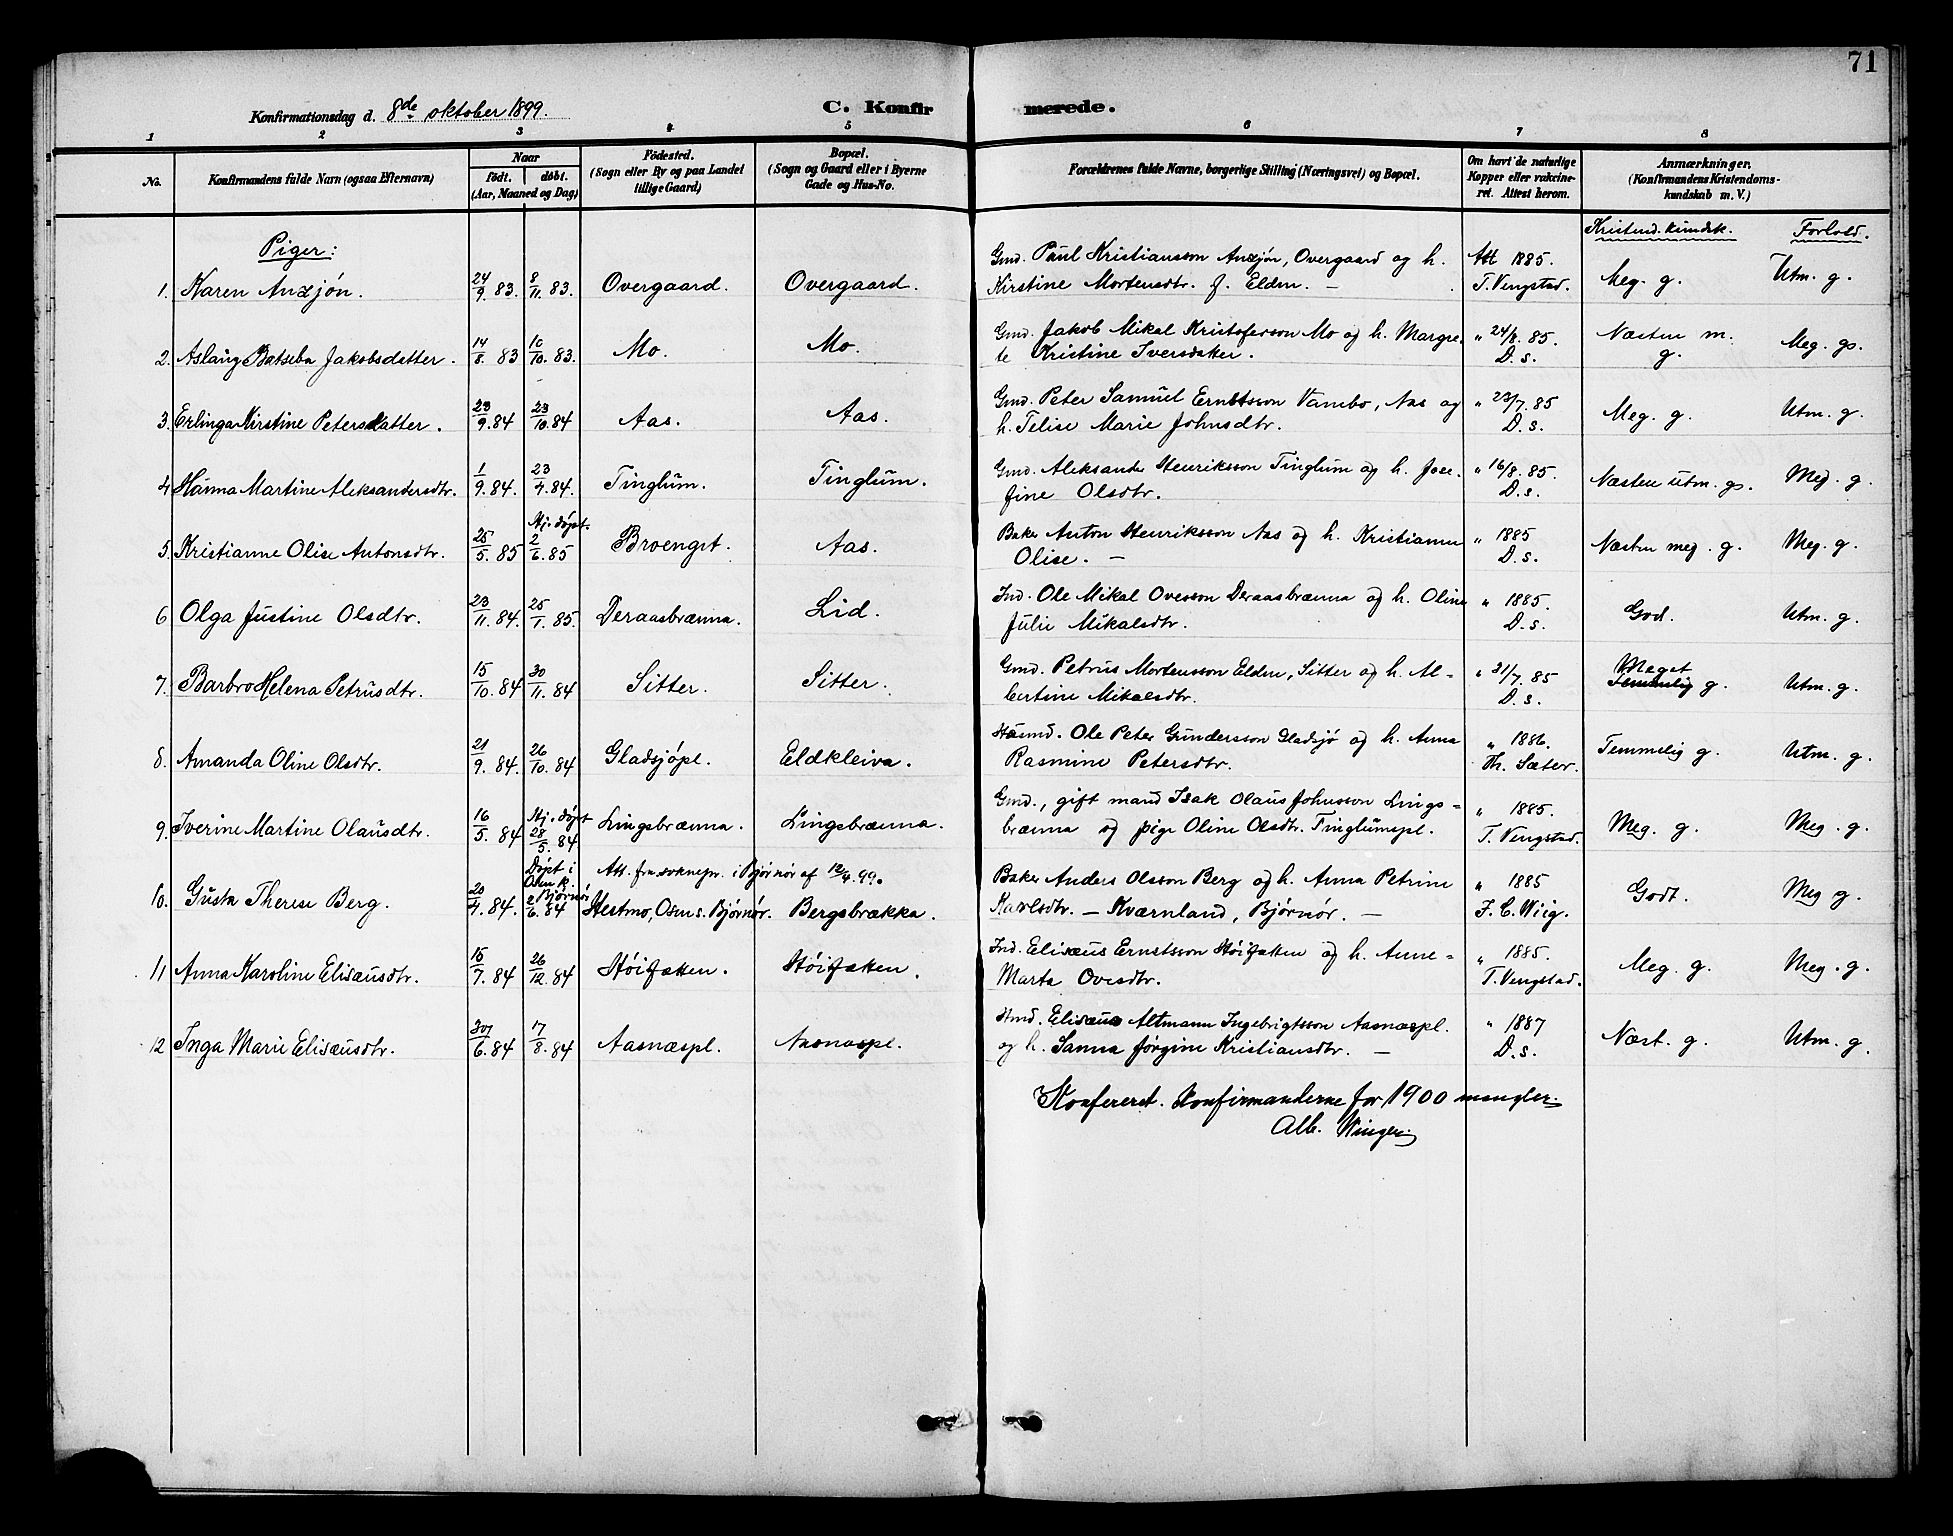 71
Konfirmationsdag d. 8de oktober 1899.
C. Konfirmerede.
1 2 3 4 5 6 7 8
No.
Konfirmandens fulde Navn (ogsaa Efternavn)
Naar
født. døbt.
(Aar, Maaned og Dag)
Fødested.
(Sogn eller By og paa Landet
tillige Gaard)
Bopæl.
(Sogn og Gaard eller i Byerne
Gade og Hus-No.
Forældrenes fulde Navne, borgerlige Stilling (Næringsvei) og Bopæl.
Om havt de naturlige
Kopper eller vakcine-
ret. Attest herom.
Anmærkninger.
(Konfirmandens Kristendoms-
kundskab m. V.)
Kristend. kundsk. Forhold.
Piger:
1. Karen Anzjøn. 24/9. 83. 8/11. 83. Overgaard. Overgaard.
Gmd. Paul Kristiansson Anzjøn, Overgaard og h.
Kirstine Mortensdtr. f. Elden. —
Att 1885.
T. Vengstad.
Meg. g. Utm. g.
2. Aslaug Batseba Jakobsdatter. 14/8. 83 10/10. 83. Mo. Mo.
Gmd. Jakob Mikal Kristofersson Mo og h. Margre-
te Kristine Iversdatter.
" 24/8. 85.
D. s.
Næsten m.
g.
Meg. gs.
3. Erlinga Kirstine Petersdatter. 23/9. 84 23/10. 84 Aas. Aas.
Gmd. Peter Samuel Ernstsson Vambo, Aas og
h. Telise Marie Johnsdtr.
" 23/7. 85
D. s.
Meg. g. Utm. g.
4 Hanna Martine Aleksandersdtr. 1/9. 84. 23/9. 84. Tinglum. Tinglum.
Gmd. Aleksander Henriksson Tinglum og h. Jose-
fine Olsdtr.
" 16/8. 85.
D. s.
Næsten utm. gs. Meg. g.
5. Kristianne Olise Antonsdtr. 25/5. 85 Hj. døpt. 2/6. 85 Broengst. Aas.
Baker Anton Henriksson Aas og h. Kristianne
Olise. —
" 1885
D. s.
Næsten meg. g. Meg. g.
6 Olga Justine Olsdtr. 23/11. 84. 25/1. 85. Deraasbrænna. Lid.
Ind. Ole Mikal Ovesson Deraasbrænna og h. Oline
Julie Mikalsdtr.
" 1885.
D. s.
God. Utm. g.
7. Barbro Helena Petrusdtr. 15/10. 84 30/11. 84 Sitter. Sitter.
Gmd. Petrus Mortensson Elden, Sitter og h. Al-
bertine Mikalsdtr.
" 31/7. 85
D. s.
Meget
Temmelig g. Utm. g.
8. Amanda Oline Olsdtr. 21/9. 84. 26/10. 84 Gladsjøpl. Eldkleiva.
Husmd. Ole Peter Gundersson Gladsjø og h. Anna
Rasmine Petersdtr.
" 1886.
Th. Sæter.
Temmelig g. Utm. g.
9. Iverine Martine Olausdtr. 16/5. 84 Hj. døpt 28/5. 84 Lingsbrænna. Lingsbrænna.
Gmd., gift mand Isak Olaus Johnsson Lings-
brænna og pige Oline Olsdtr. Tinglumspl.
" 1885.
T. Vengstad.
Meg. g. Meg. g.
10. Gusta Therese Berg. 20/4. 84. Døpt i Osen k. Bjørnør 2/6. 84
Att. fra soknepr. i Bjørnør af 12/4. 99.
Hestmo, Osen s. Bjørnør. Bergsbrækka.
Baker Anders Olsson Berg og h. Anna Petrine
Karlsdtr. — Kværnland, Bjørnør. —
" 1885
F. C. Wiig.
Godt. Meg g.
11 Anna Karoline Elisæusdtr. 15/7. 84 26/12. 84 Støifaken. Støifaken.
Ind. Elisæus Ernstsson Støifaken og h. Anne-
Marta Ovesdtr.
" 1885.
T. Vengstad.
Meg. g. Meg. g.
12 Inga Marie Elisæusdtr. 30/6. 84 17/8. 84 Aasnæspl. Aasnæspl.
Hmd. Elisæus Altmann Ingebrigtsson Aasnæspl.
og h. Sanna Jørgine Kristiansdtr. —
" 1887
D. s.
Næst. g. Utm. g.
Konfereret. Konfirmanderne for 1900 mangler.
Alb. Winger.